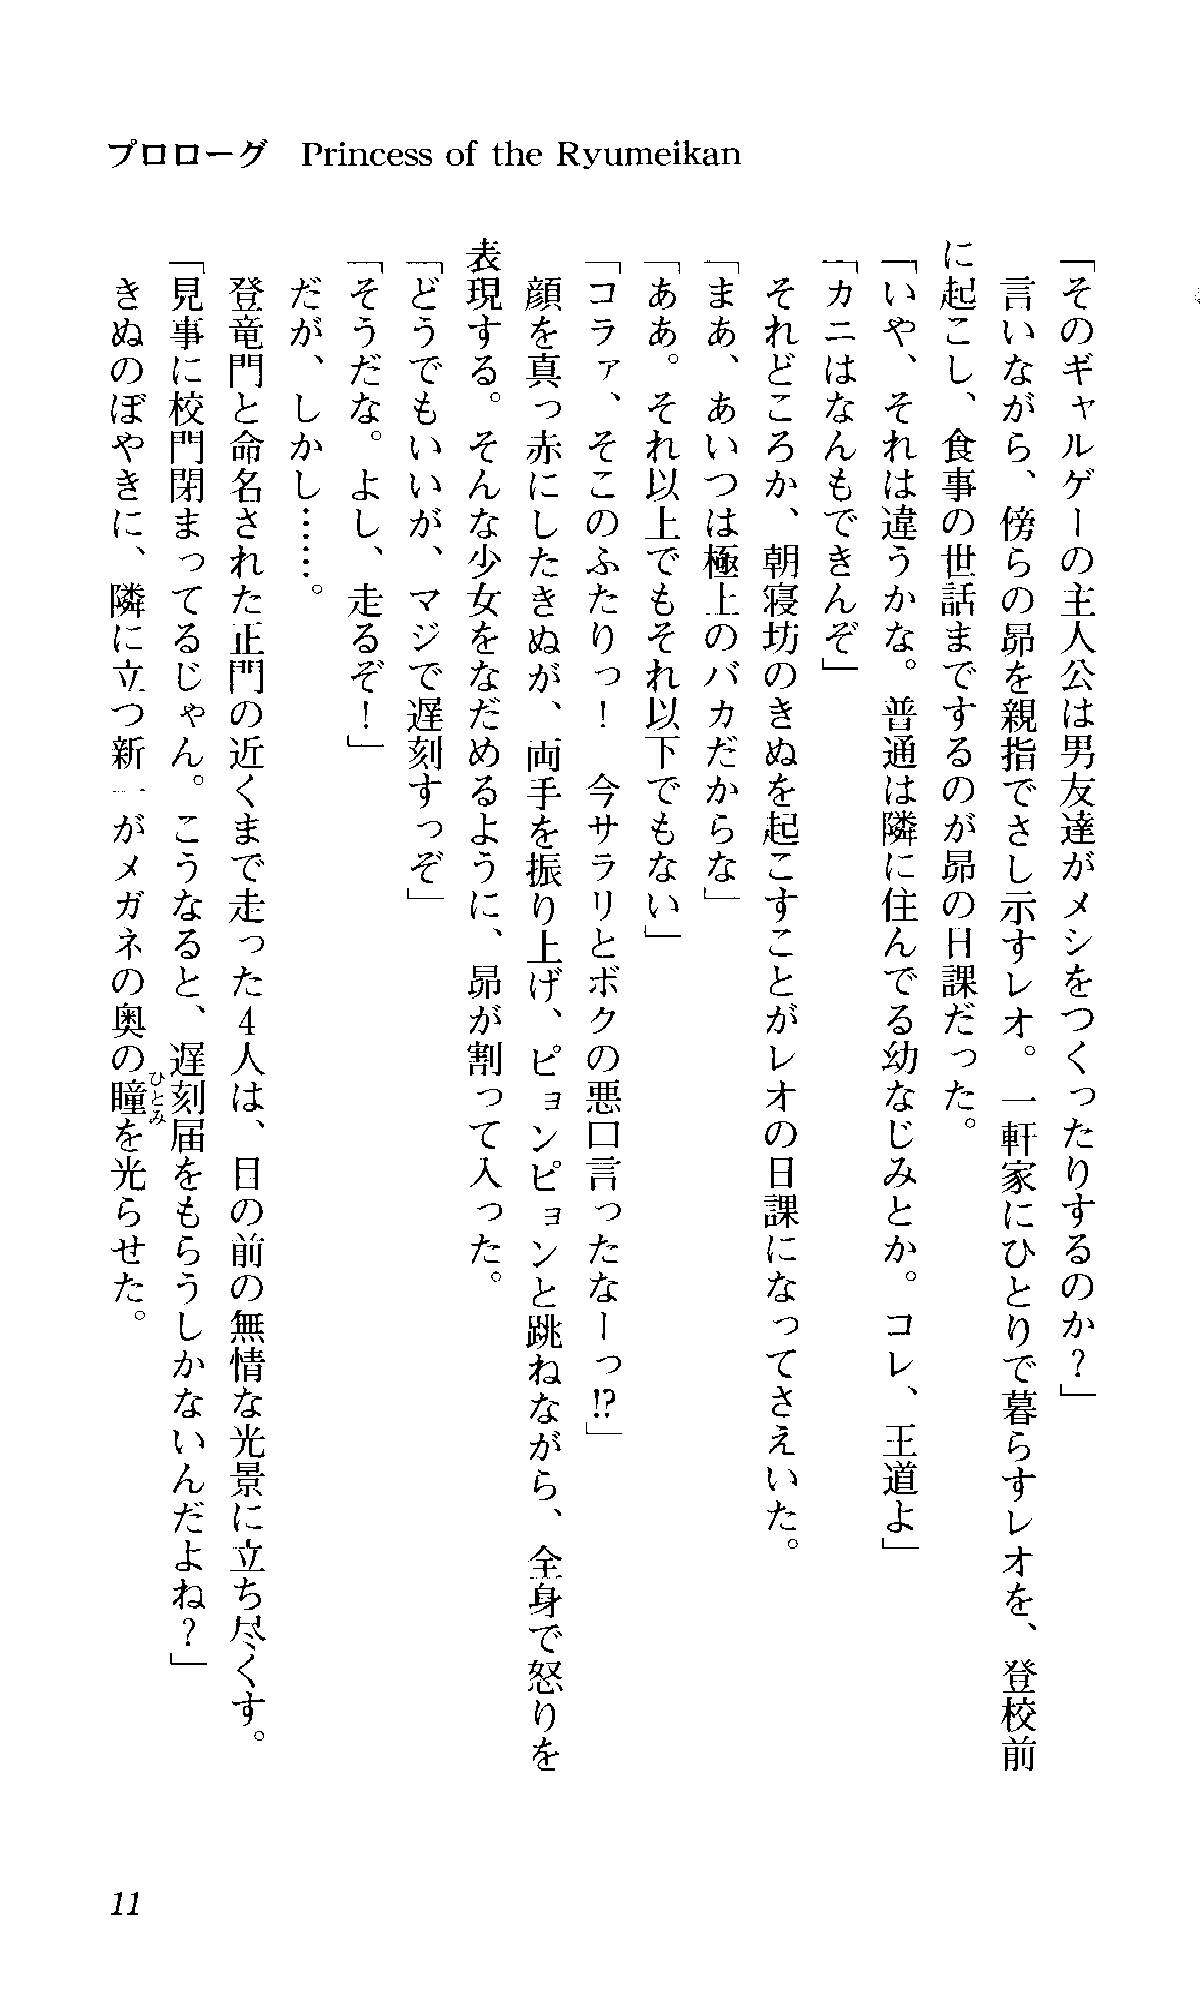 プロローグ　Princess of the Ryumeikan
「そのギャルゲーの主人公は男友達がメシをつくったりするのか？」
言いながら、傍らの昴を親指でさし示すレオ。一軒家にひとりで暮らすレオを、登校前
に起こし、食事の世話までするのが昴の日課だった。
「いや、それは違うかな。普通は隣に住んでる幼なじみとか。コレ、王道よ」
「カニはなんもできんぞ」
それどころか、朝寝坊のきぬを起こすことがレオの日課になってさえいた。
「まあ、あいつは極上のバカだからな」
「ああ。それ以上でもそれ以下でもない」
「コラァ、そこのふたりっ！　今サラリとボクの悪口言ったなーっ!?」
顔を真っ赤にしたきぬが、両手を振り上げ、ピョンピョンと跳ねながら、全身で怒りを
表現する。そんな少女をなだめるように、昴が割って入った。
「どうでもいいが、マジで遅刻すっぞ」
「そうだな。よし、走るぞ！」
だが、しかし……。
登竜門と命名された正門の近くまで走った４人は、目の前の無情な光景に立ち尽くす。
「見事に校門閉まってるじゃん。こうなると、遅刻届をもらうしかないんだよね？」
きぬのぼやきに、隣に立つ新一がメガネの奥の瞳を光らせた。
ひとみ
11